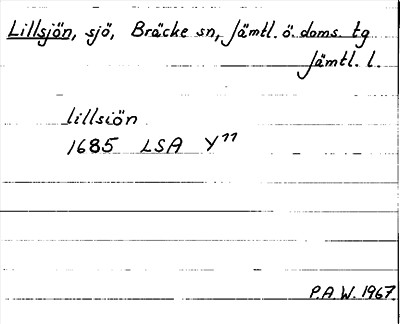 Lillsjön, sjö, Bräcke sn, Jämtl. ö. doms. tg
Jämtl. l.
lillsiön
1685 LSA Y¹¹
P.A.W. 1967.